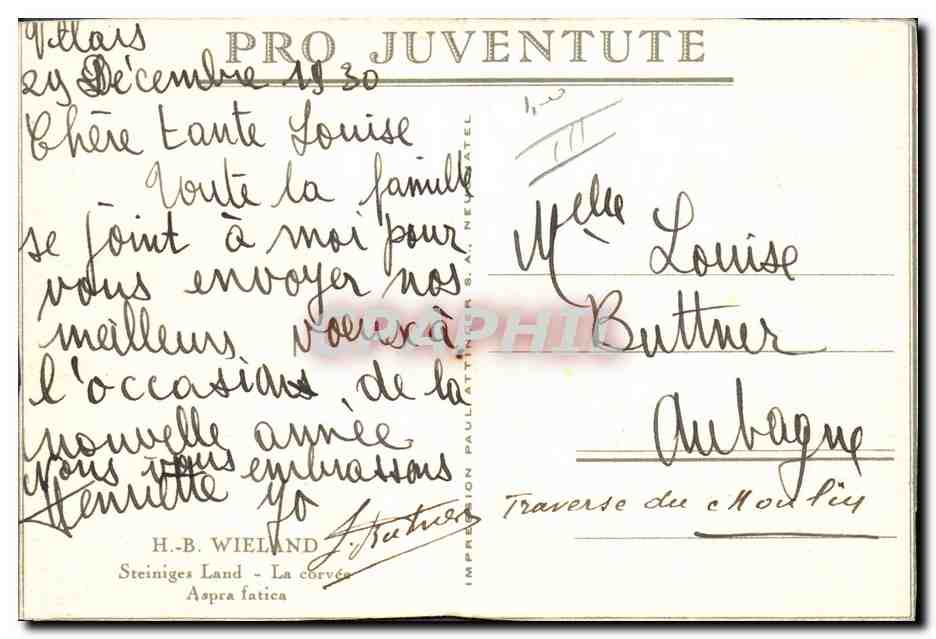 PRO JUVENTUTE
Villars
29 Décembre 1930
Chère tante Louise
Toute la famille
se joint à moi pour
vous envoyer nos
meilleurs voeux à
l'occasion de la
nouvelle année
Nous vous embrassons
Henriette
H.-B. WIELAND
Steiniges Land - La corvée
Aspra fatica
IMPRESSION PAUL ATTINGER S. A., NEUCHATEL
III
Melle Louise
Buttner
Aubagne
Traverse du Moulin